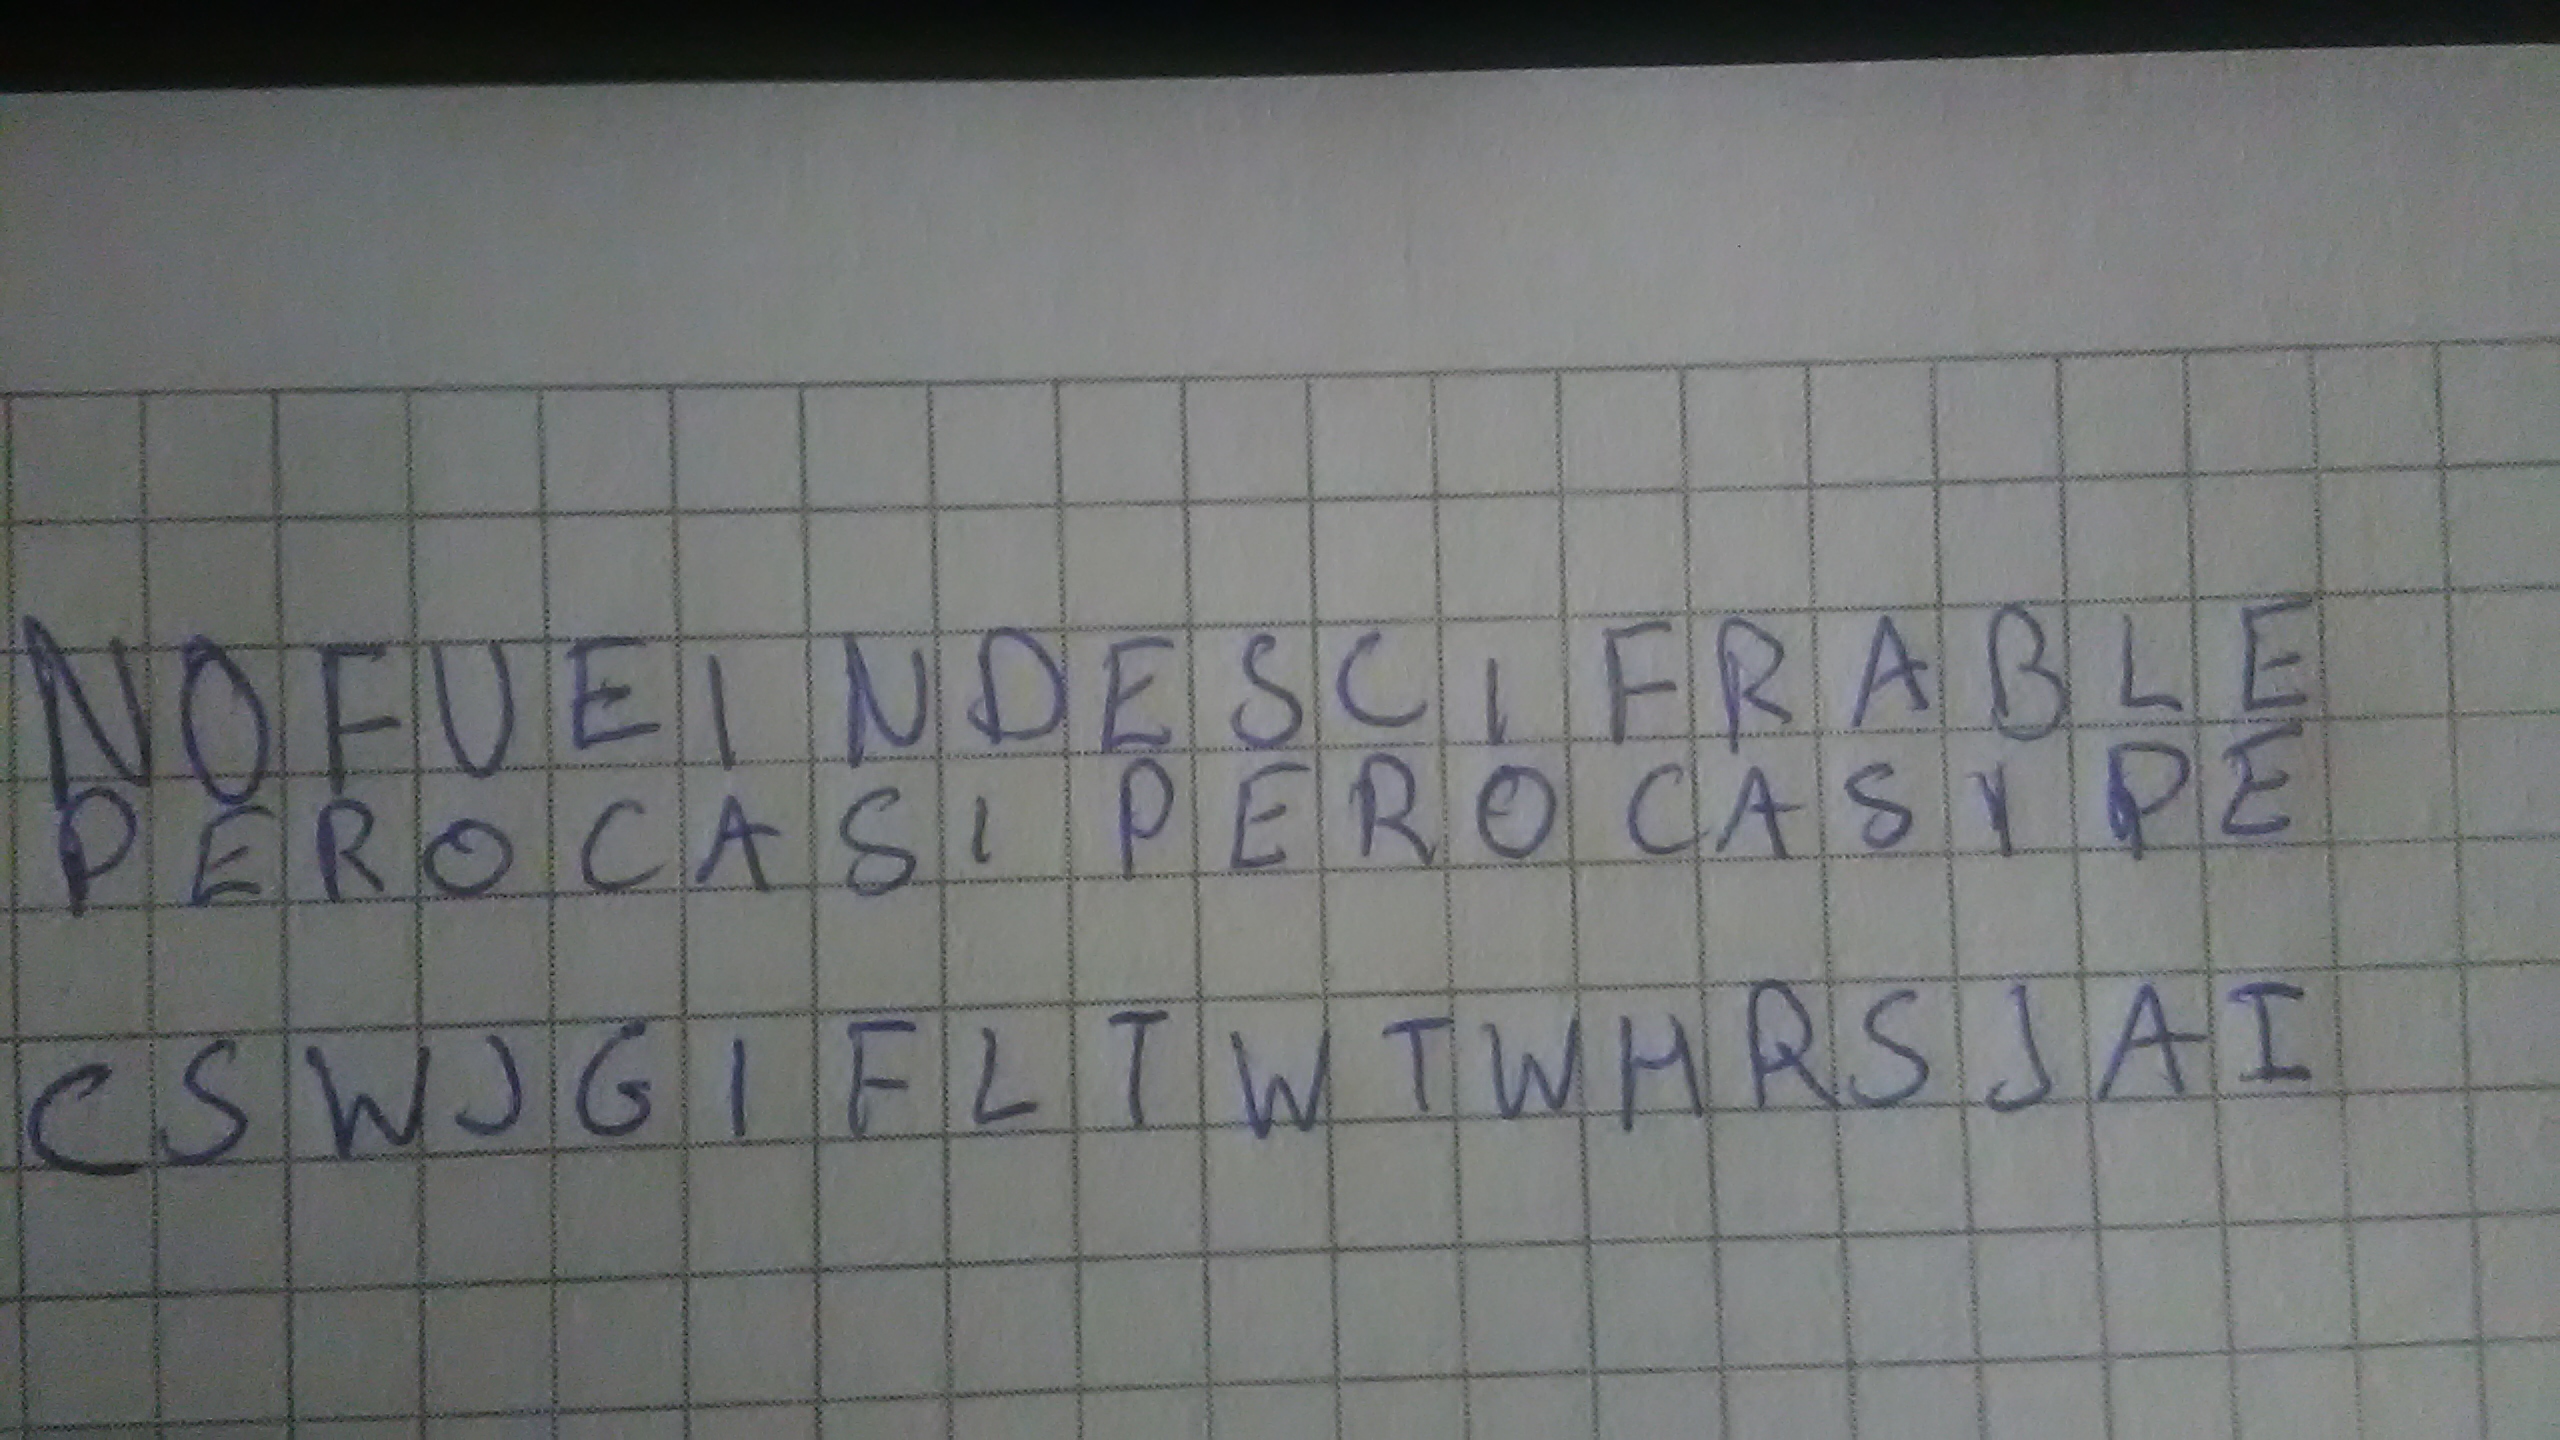 NOFUEINDESCIFRABLE
PEROCASIPEROCASIPE
CSWJGIFLTWTWHRSJAI